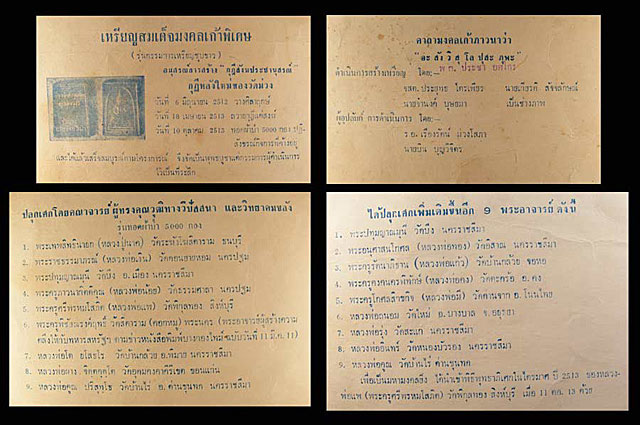 เหรียญสมเด็จมงคลเก้าพิเศษ
(รุ่นกรรมการเหรียญชุบขาว)
อนุสรณ์การสร้าง "กุฏิสังฆประชานุสรณ์"
กุฏิหลังใหม่ของวัดม่วง
วันที่ 6 มิถุนายน 2513 วางศิลาฤกษ์
วันที่ 18 เมษายน 2513
วันที่ 10 ตุลาคม 2513 ทอดผ้าป่า 5000 กอง
คาถามงคลเก้าภาวนาว่า
"อะ สัง วิ สุ โล ปุสะ ภุพะ"
ดำเนินการสร้างเหรียญ โดย:—
จสต. ประยุทธ ไตรเพียร นายเกียรติ สัจจลักษณ์
นายจำนงค์ บุษยมา เป็นช่างภาพ
ผู้อุปถัมภ์ การดำเนินการ โดย:—
ร.อ. เรืองรัตน์ ม่วงโสภา
นายบิน บุญวิจิตร
ปลุกเศกโดยคณาจารย์ ผู้ทรงคุณวุฒิทางวิปัสสนา และวิทยาคมขลัง
รุ่นทอดผ้าป่า 5000 กอง
1. พระเทพสิทธินายก (หลวงปู่นาค) วัดระฆังโฆสิตาราม ธนบุรี
2. พระราชธรรมาภรณ์ (หลวงพ่อเงิน) วัดดอนยายหอม นครปฐม
3. พระปทุมญาณมุนี วัดบึง อ. เมือง นครราชสีมา
4. พระครูภาวนากิตติคุณ (หลวงพ่อน้อย) วัดธรรมศาลา นครปฐม
5. พระครูศรีพรหมโสภิต (หลวงพ่อแพ) วัดพิกุลทอง สิงห์บุรี
7. หลวงพ่อโต วัดบ้านกล้วย อ.พิมาย นครราชสีมา
8. หลวงพ่อผาง จิตตคุตโต วัดอุดมคงคาคีรีเขต ขอนแก่น
9. หลวงพ่อคูณ ปริสุทโธ วัดบ้านไร่ อ. ด่านขุนทด นครราชสีมา
ได้ปลุกเศกเพิ่มเติมขึ้นอีก 9 พระอาจารย์ ดังนี้
1. พระปทุมญาณมุนี วัดบึง นครราชสีมา
2. พระอนุศาสนโกศล (หลวงพ่อทอง) วัดอิสาณ นครราชสีมา
3. พระครูรัตนาภิธาน (หลวงพ่อแก้ว) วัดบ้านกล้วย จอหอ
4. พระครูคงคนครพิทักษ์ (หลวงพ่อคง) วัดตะคร้อ อ. คง
5. พระครูโกศลสาธกิจ (หลวงพ่อมี) อ. โนนไทย
6. หลวงพ่อถนอม วัดใหม่ อ. บางบาล จ. อยุธยา
7. หลวงพ่อรุ่ง วัดสะแก นครราชสีมา
8. หลวงพ่ออินทร์ วัดหนองบัวรอง นครราชสีมา
9. หลวงพ่อคูณ วัดบ้านไร่ ด่านขุนทด
เพื่อเป็นมหามงคลยิ่ง ได้นำเข้าพิธีพุทธาภิเศกในไตรมาส ปี 2513 ของหลวง-
พ่อแพ (พระครูศรีพรหมโสภิต) วัดพิกุลทอง สิงห์บุรี เมื่อ 11 ตค. 13 ด้วย